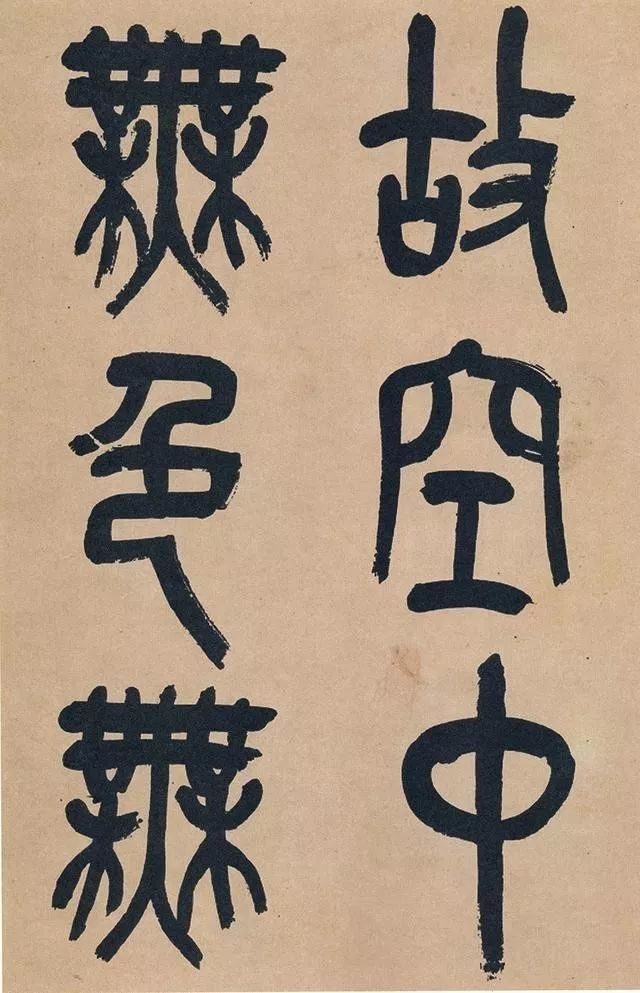 故空中
無色無